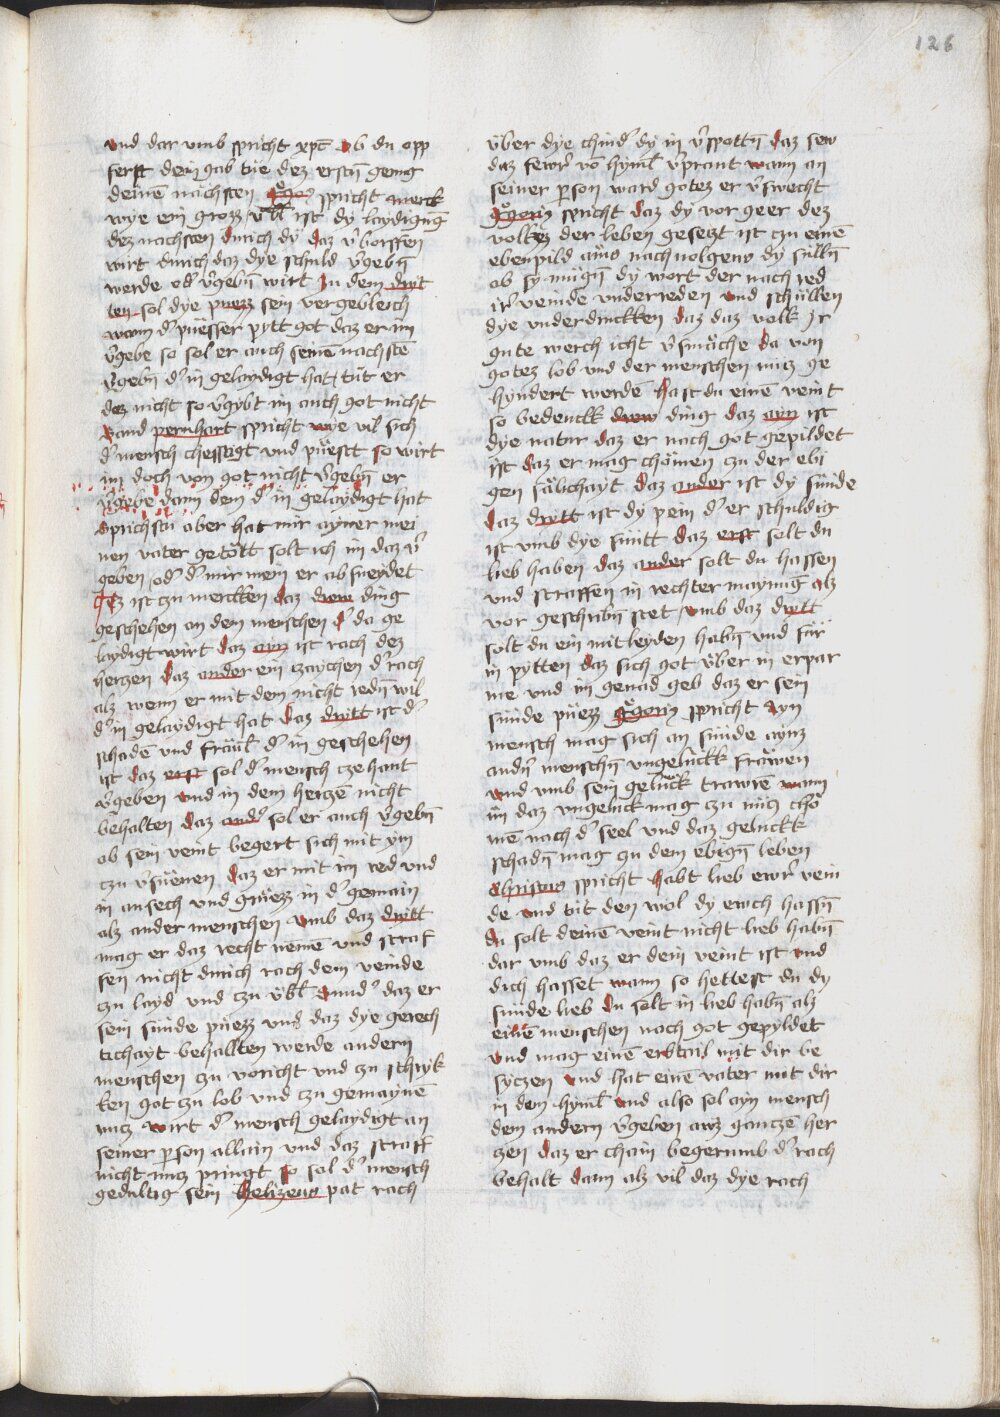 126
vnd dar vmb spricht xpc̄ Ob du opp
ferst dein gab tüe dez ersten genüg
deinē nächsten Ggoꝰ spricht merck
wye ein grozz vbl̄ ist dy laydigūg
dez nachsten durich dy daz v̉borffen
wirt durich daz dye schuld v̉gebn̄
werde ed̉ v̉gebn̄ wirt In dem drit
ten sol dye puezz sein vergebleich
wann d̉ püesser pytt got daz er im
v̉gebe so sol er auch seinē nachstē
v̉gebn̄ d̉ in gelaydigt hat tüt er
dez nicht so v̉gibt im auch got nicht
Sand pernhart spricht wye vil sich
d̉ mensch chestigt vnd püesst so wirt
im doch von got nicht v̉gebn̄ er
v̉gebe dann dem d̉ in gelaydigt hat
Sprichstu aber hat mir ayner mei
nen vater getött solt ich im daz v̉
geben / od̉ d̉ mir mein er absneydet
Ez ist czu mercken daz drew ding
geschehen an dem menschen d̉ da ge
laydigt wirt daz ayn ist rach dez
herczen daz ander ein czaychen d̉ rach
alz wenn er mit dem nicht redn̄ wil
d̉ in gelaydigt hat daz dritt ist d̉
schadē vnd fräul̄ d̉ im geschehen
ist daz erst sol d̉ mensch czehant
v̉geben vnd in dem herczē nicht
behalten daz and̉ sol er auch v̉gebn̄
ob sein veint begert sich mit ym
czu v̉süenen daz er mit im red vnd
in ansech vnd grüezz in d̉ gemain
alz ander menschen vmb daz dritt
mag er daz recht nemē vnd straf
fen nicht durich rach dem veinde
czu layd vnd czu vbl̄ Sund̉ daz er
sein sünde püezz vnd daz dye gerech
tichayt behallten werde andern
menschen czu voricht vnd czu schryk
ken got czu lob vnd czu gemaynē
nucz wirt d̉ mensch gelaydigt an
seiner person allain vnd daz straff
nicht nucz pringt so sol d̉ mensch
gedultig sein Helizeus pat rach
v̈ber dye chind̉ dy in v̉spottn̄ daz sew
daz fewr̉ vō hyml̄ v̉prant wann an
seiner ꝑson ward gotez er v̉swecht
Ggoriꝰ spricht daz dy vor geer dez
volkez der leben gesetzt ist czu einē
ebenpild ains nachuolgens dy sülln̄
ob sy mügn̄ dy wort der nach red
ir̉ veinde vnderreden vnd schüllen
dye vnderdruckken daz daz volk jr
gute werch icht v̉smäche da von
gotez lob vnd der menschen nücz ge
hyndert werdē Hast du einē veint
so bedenckk drew ding daz ayn ist
dye natur daz er nach got gepildet
ist daz er mag chömen czu der ebi
gen sälichayt daz ander ist dy sünde
daz dritt ist dy pein d̉ er schuldig
ist vmb dye sünd daz erst solt du
lieb haben daz ander solt du hassen
vnd straffen in rechter maynūg alz
vor geschribn̄ stet / vmb daz dritt
solt du ein mitleyden habn̄ vnd für
in pytten daz sich got v̈ber in erpar
me vnd im genad geb daz er sein
sünde püezz Ggoriꝰ spricht Ayn
mensch mag sich an sünde aynz
andn̉ menschn̄ vngelückk fräwen
vnd vmb sein gelück trawrē wann
im daz vngeluck mag czu nücz chö
mē nach d̉ seel vnd daz geluckk
schadn̄ mag zu dem ebign̄ leben
Christus spricht habt lieb ewr̉ vein
de vnd tüt den wol dy ewch hassn̄
du solt deinē veint nicht lieb habn̄
dar vmb daz er dein veint ist vnd
dich hasset wann so hettest du dy
sünde lieb du solt in lieb habn̄ alz
einē menschen nach got gepyldet
vnd mag einē erbtail mit dir be
syczen vnd hat einē vater mit dir
in dem hyml̄ vnd also sol ayn mensch
dem andern v̉geben auz ganczē her
czen daz er chain begerumb d̉ rach
behalt dann alz vil daz dye rach